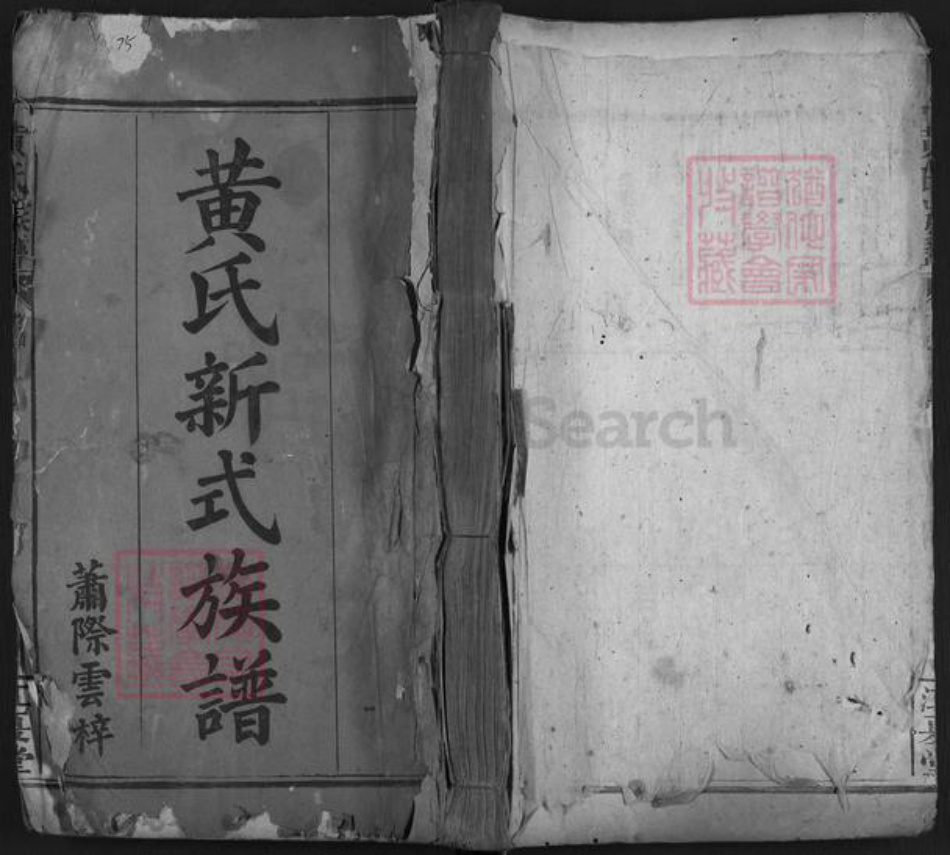 75
黄氏新式族譜
蕭際雲梓
猶他家
譜學會
收藏
Search